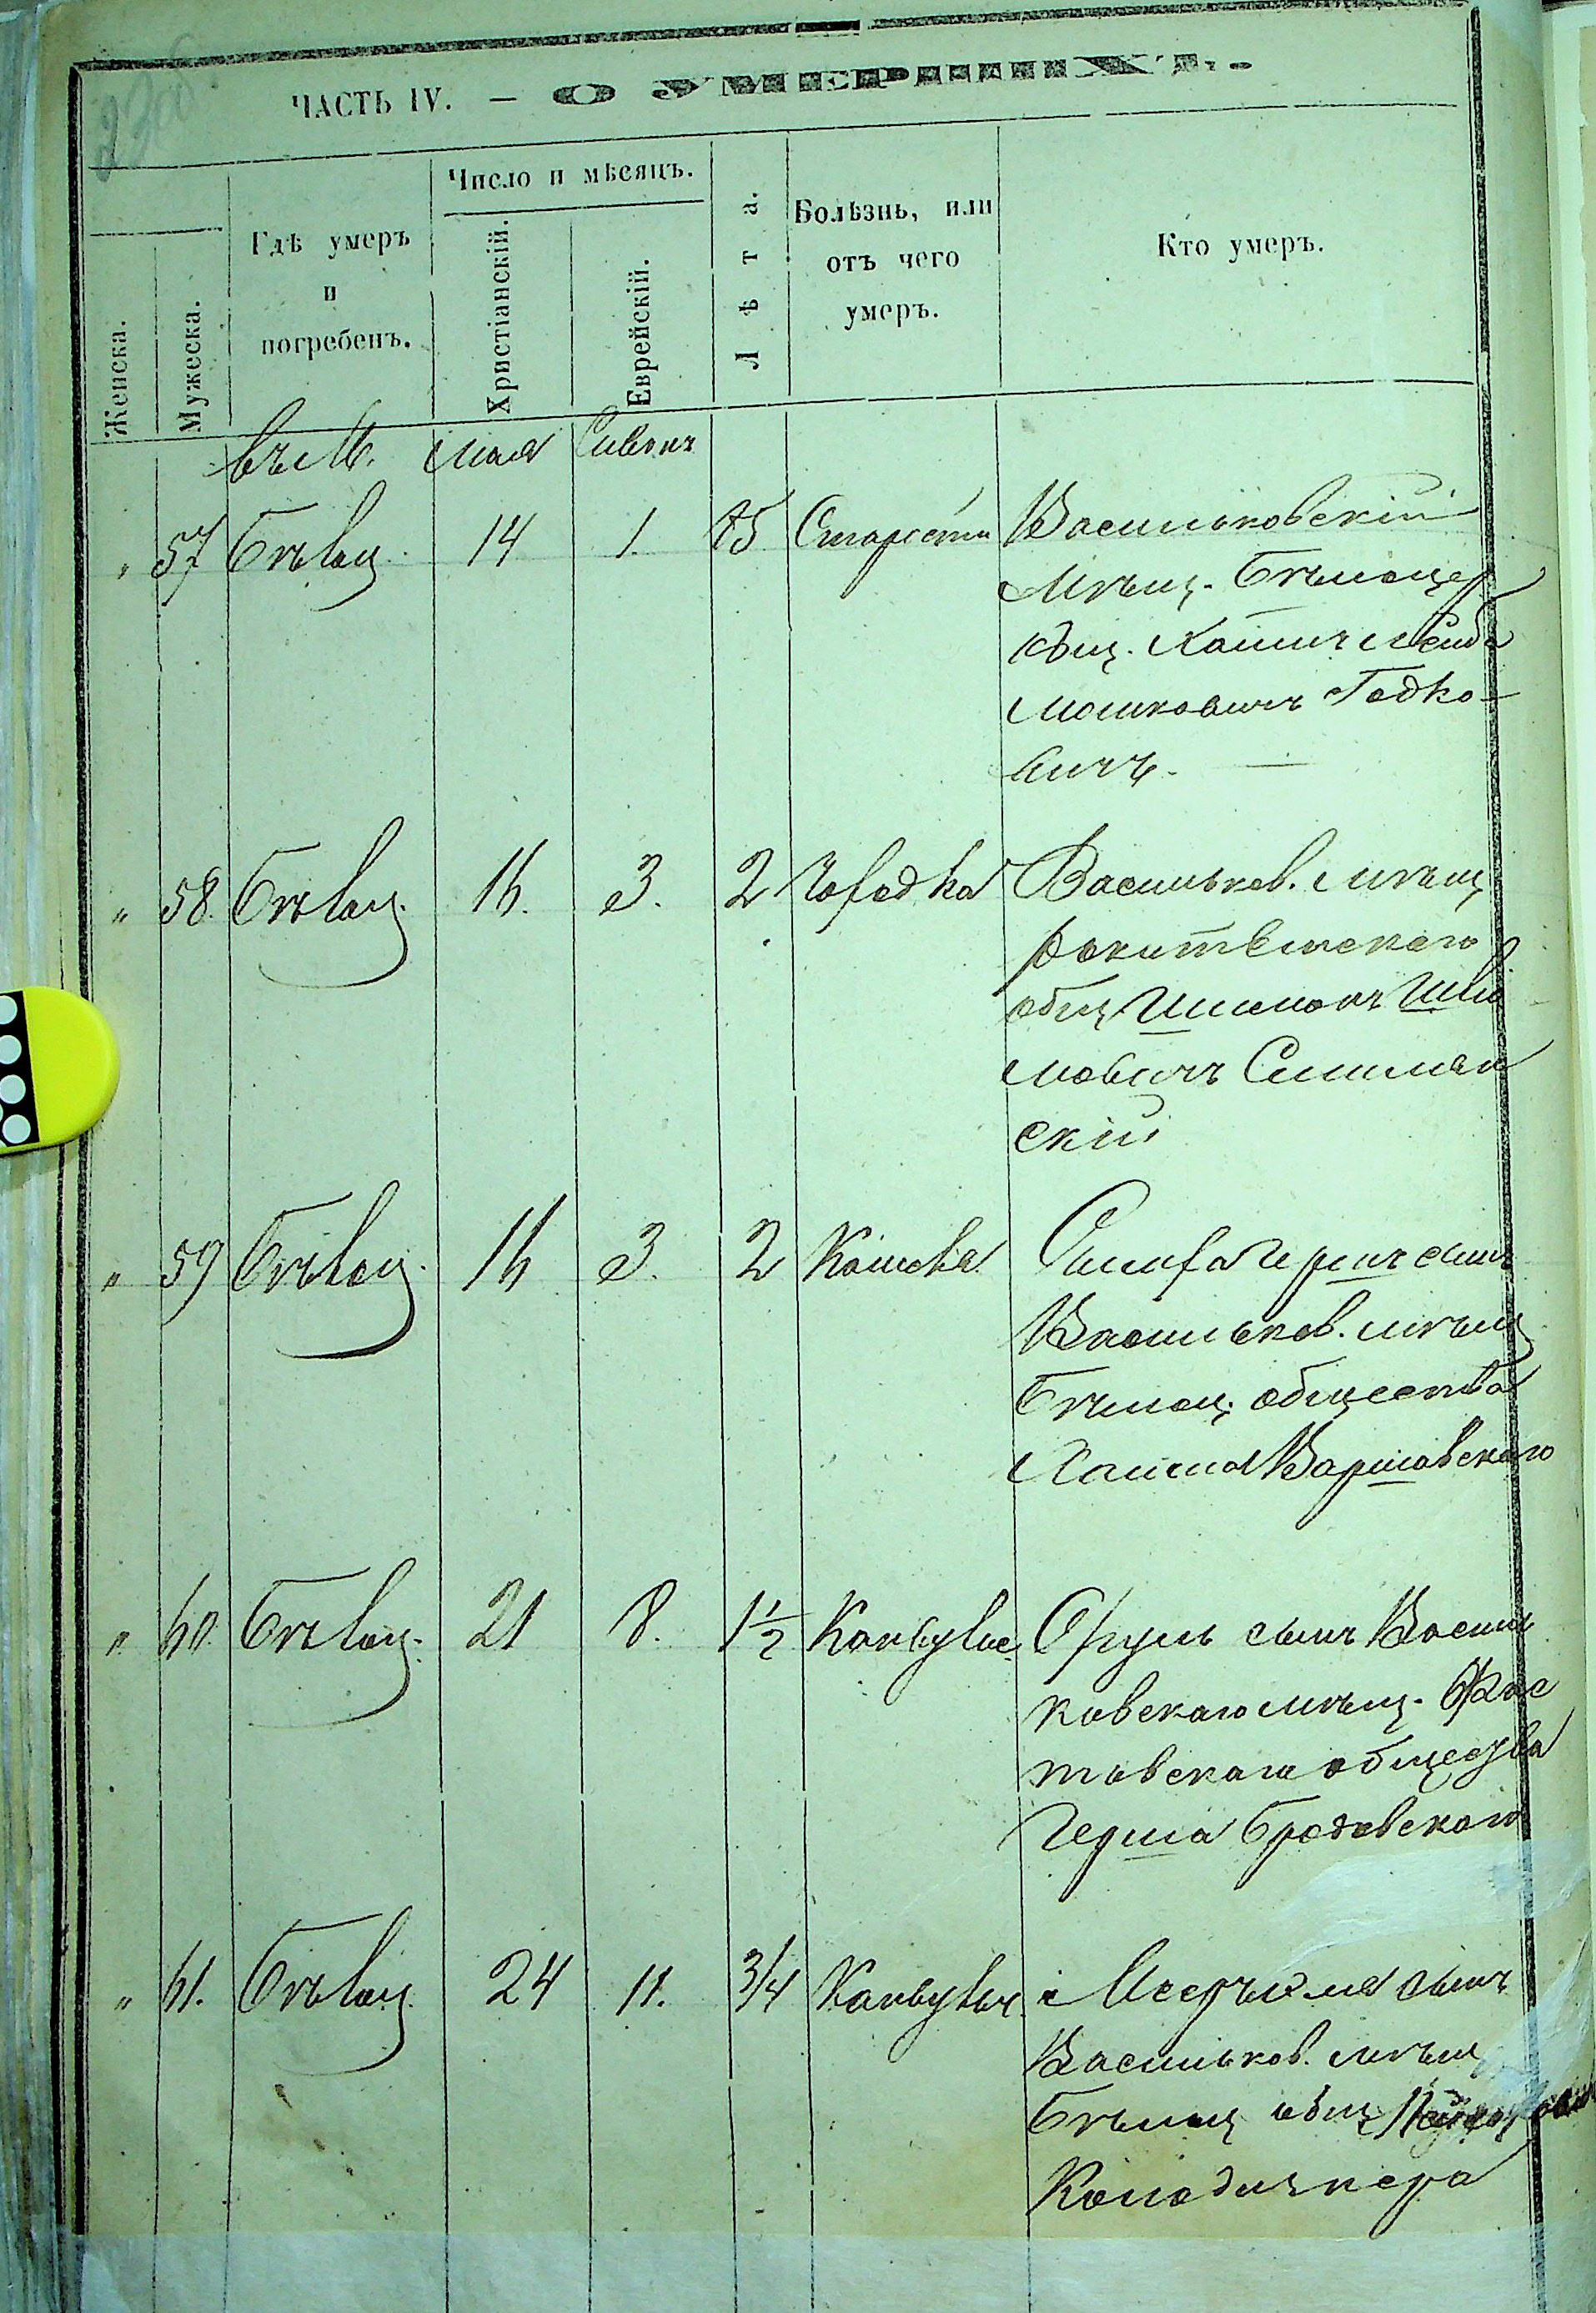 ЧАСТЬ IV. — О УМЕРШИХЪ.
Женска.
Мужеска.
Гдѣ умеръ
и
погребенъ.
Число и мѣсяцъ.
Христіанскій.
Еврейскій.
Лѣта.
Болѣзнь, или
отъ чего
умеръ.
Кто умеръ.
въ М. мая Сивонъ
" 57 Бѣлоц. 14 1. 85 Старости Васильковскій
Мѣщ. Бѣлоцер
общ. Хаимъ Лейба
Мошковичъ Годко-
вичъ.
" 58. Бѣлоц. 16. 3. 2 Васильков. мѣщ
общ Шимонъ
мовичъ
скій
" 59 Бѣлоц. 16 3. 2 Кашель Гершъ сынъ
Васильков. мѣщ
Бѣлоц. общества
Хаима Варшавскаго
" 60. Бѣлоц. 21 8. 1½ Конвульс. Сруль сынъ Василь
ковскаго мѣщ. Фас
товскаго общества
Герша Бродовскаго
" 61. Бѣлоц. 24 11. 3/4 Конвульс. сынъ
Васильков. мѣщ
Бѣлоц общ